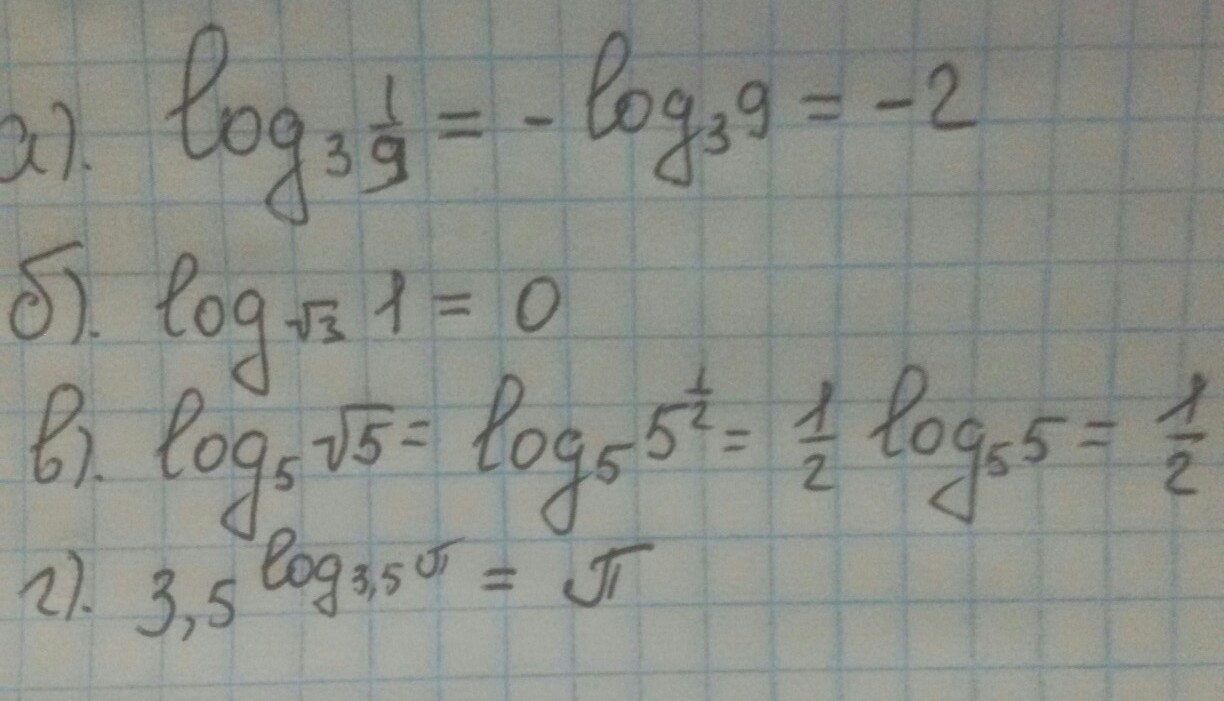 а). log₃ 1/9 = - log₃ 9 = -2
б). log_√3 1 = 0
в). log₅ √5 = log₅ 5^(1/2) = 1/2 log₅ 5 = 1/2
г). 3,5^(log_3,5 π) = π